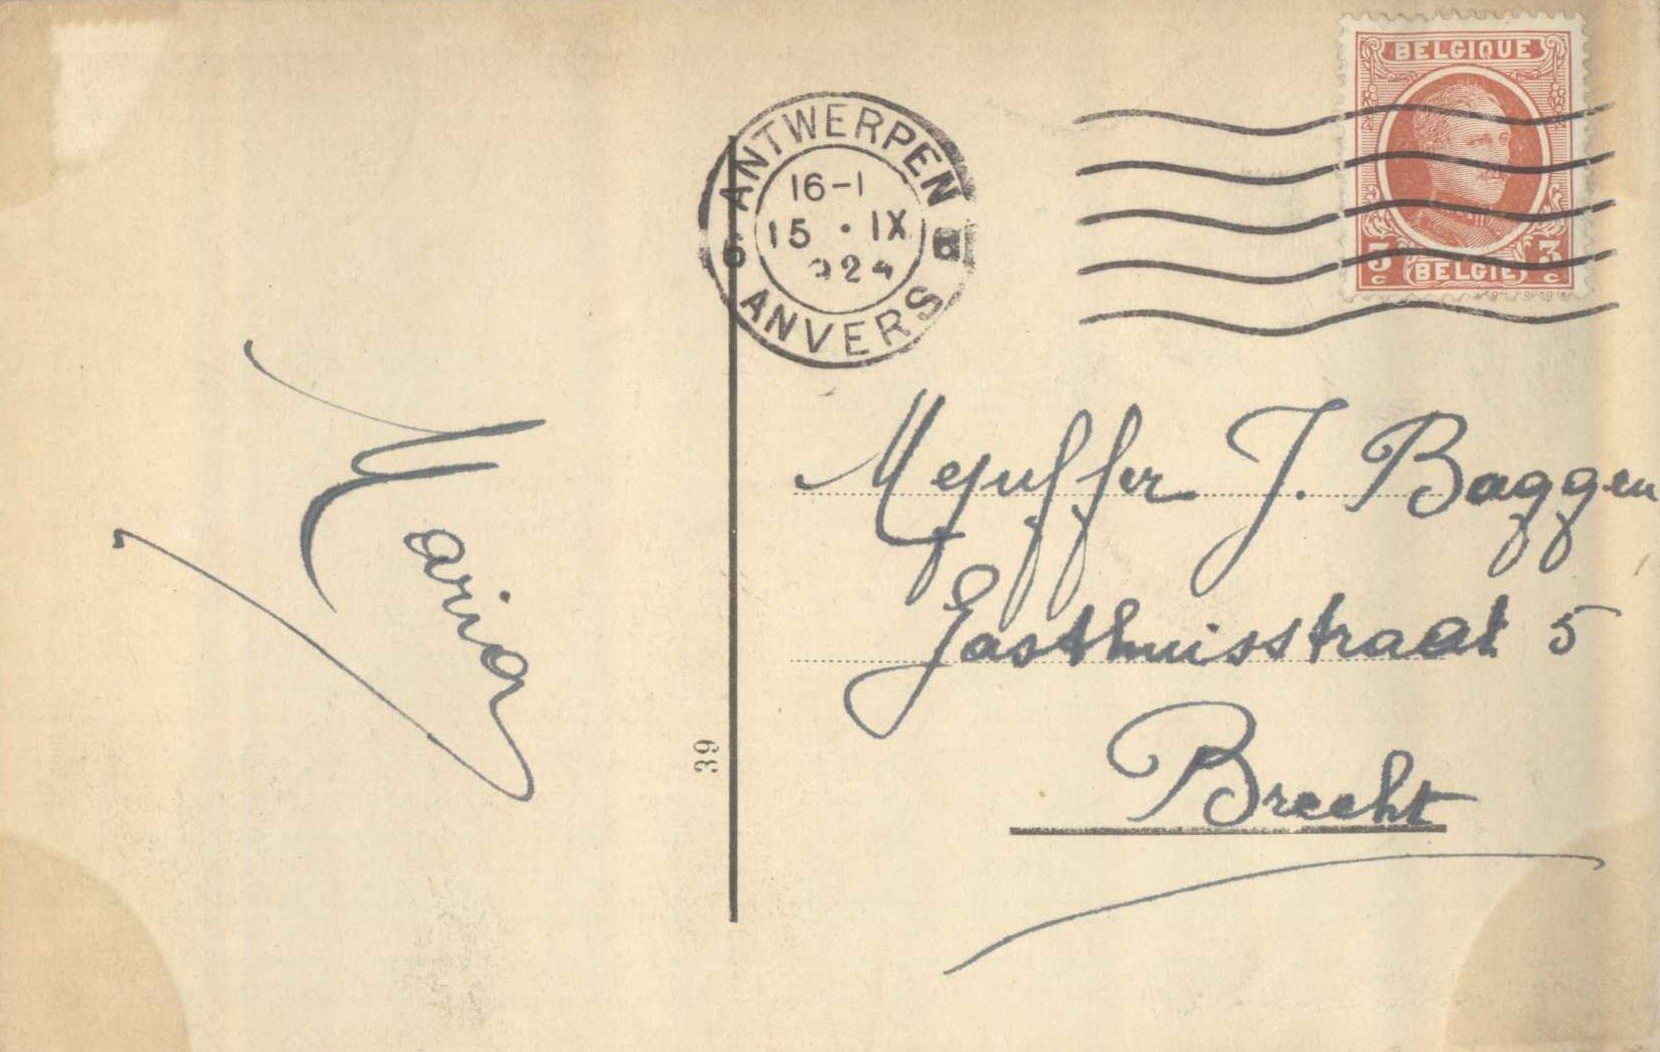 BELGIQUE
3c (BELGIË) 3c
ANTWERPEN
16-1
15 · IX
924
6 6
ANVERS
Maria
Mejuffer J. Baggen
Gasthuisstraat 5
Brecht
39